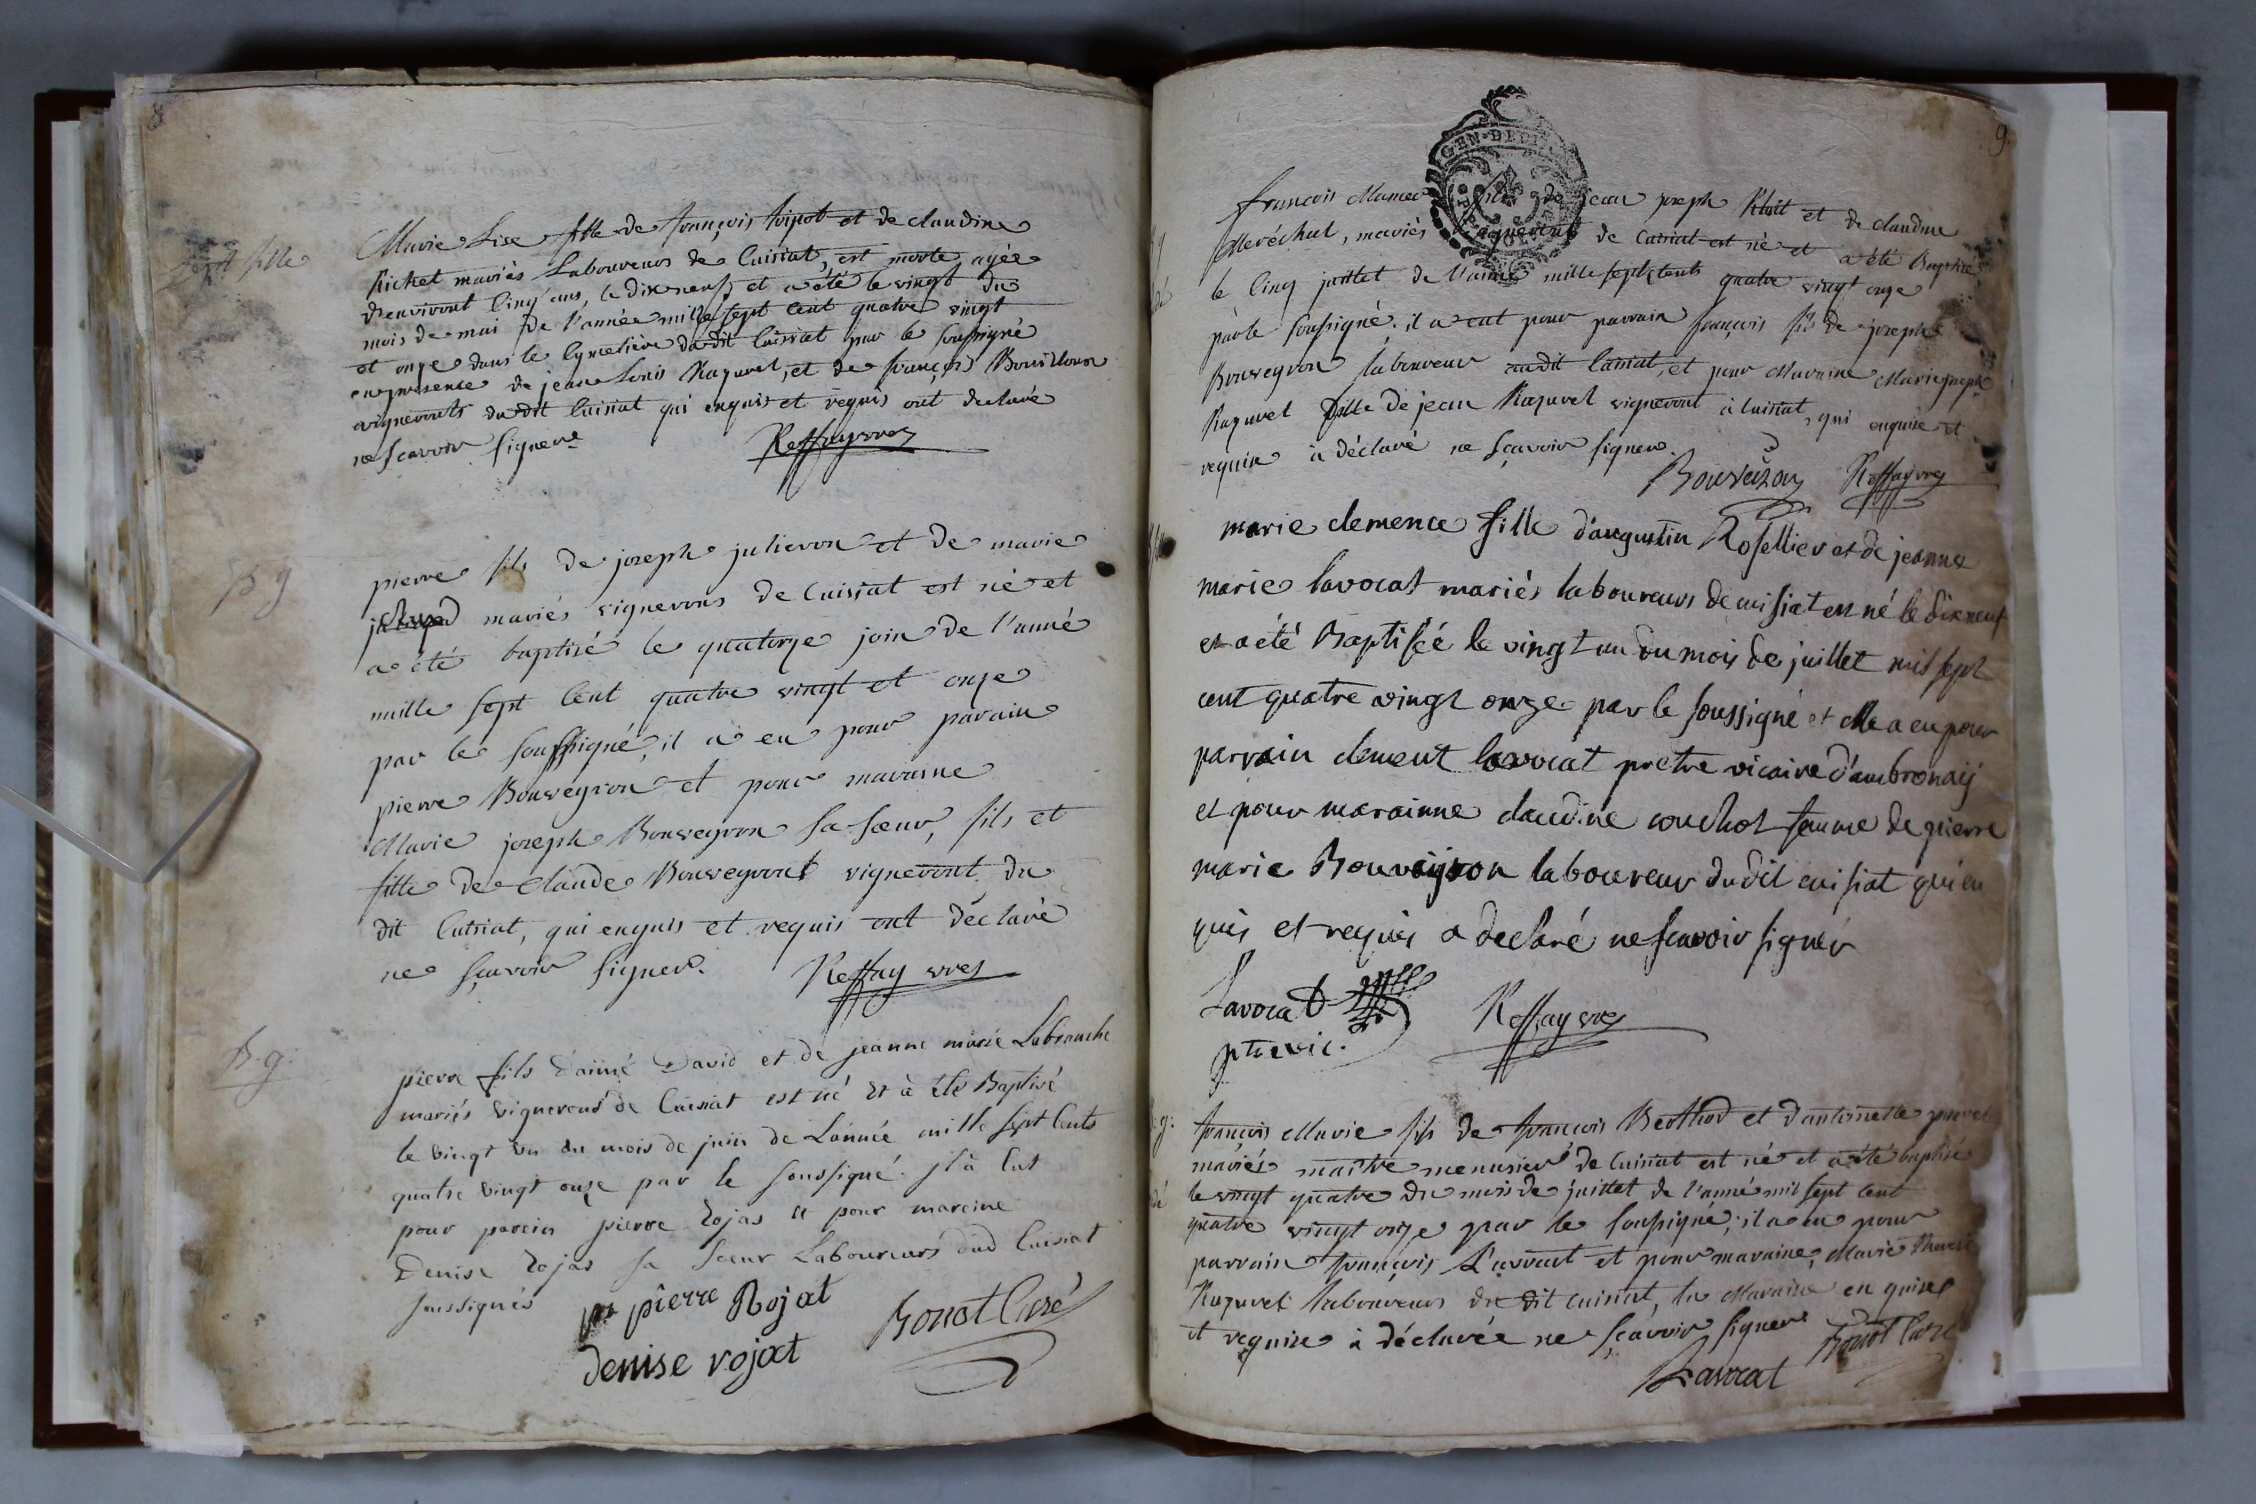 8
Marie Lise fille de françois et de claudine
Richet mariés Laboureurs de Cuisiat, est morte, agée
d'environt Cinq ans, le dix neuf, et a été le vingt du
mois de mai de l'année mille sept cent quatre vingt
et onze dans le Cymetiére dudit Cuisiat par le soussigné
en presence de jean Louis Razuret, et de françois Bouilloux
vignerouts dudit Cuisiat qui enquis et requis ont declaré
ne scavoir signer
Reffay vres
fille
B g
pierre fils de joseph julieron et de marie
mariés vignerons de Cuisiat est né et
a été baptisé le quatorze join de l'anné
mille sept Cent quatre vingt et onze
par le soussigné, il a eu pour parain
pierre Bouveyron et pour maraine
Marie joseph Bouveyron sa sœur, fils et
fille de Claude Bouveyront vigneront du
dit Cuisiat, qui enquis et requis ont déclaré
ne sçavoir signer.
Reffay vres
B. g.
pierre fils d'aimé David et de jeanne marie Labranche
mariés vignerons de Cuisiat est né et à été Baptisé
le vingt un du mois de juin de L'année mille sept Cents
quatre vingt onze par le soussigné. jl à Eut
pour parein pierre Rojas et pour mareine
Denise Rojas sa sœur Laboureurs dud Cuisiat
soussignés
pierre Rojat
denise rojat
Bonot Curé
9.
GEN. DE DI
francois Mamer fils de jean joseph et de claudine
Meréchal, mariés vignerons de Cuisiat est né et a été Baptisé
le Cinq juillet de l'année mille sept Cents quatre vingt onze
par le soussigné. il a eut pour parrain françois fils de joseph
Bouveyron laboureur audit Cuisiat, et pour Maraine Marie joseph
Razuret fille de jean Razuret vigneront à Cuisiat, qui enquise et
requise à déclaré ne sçavoir signer.
Bouveiron
Reffay vres
marie clemence fille d'augustin Rosellier et de jeanne
marie lavocat mariés laboureurs de cuisiat est né le dix neuf
et a été Baptisée le vingt un du mois de juillet mil sept
cent quatre vingt onze par le soussigné et elle a eu pour
parrain clement lavocat pretre vicaire d'ambronay
et pour marainne claudine couchot femme de pierre
marie Bouveyron laboureur dudit cuisiat qui en
quis et requis a declaré ne scavoir signer
Lavocat
ptre vic.
Reffay vres
françois Marie fils de françois Berthod et d'antoinette
mariés maitre menusier de Cuisiat est né et a été baptisé
le vingt quatre du mois de juillet de l'anné mil sept cent
quatre vingt onze par le soussigné; il a eu pour
parrain françois L'avocat et pour maraine, Marie
Razuret laboureurs du dit cuisiat, la Maraine en quise
et requise à déclarée ne sçavoir signer
Bonot Curé
Lavocat